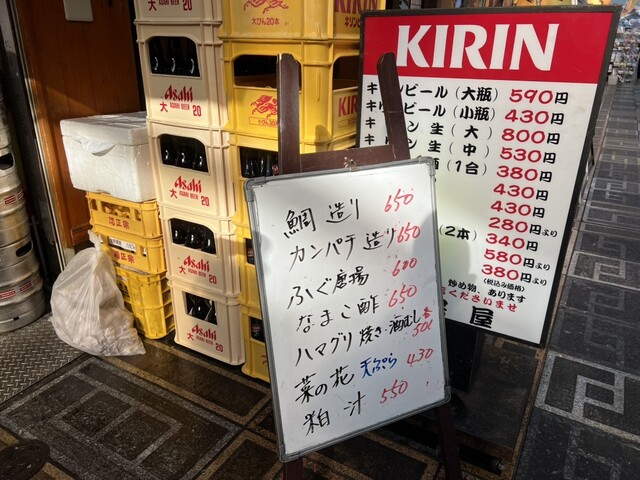 Asahi
大 ASAHI BEER 20
大びん20本
KIRIN
KIRIN
キリンビール(大瓶) 590円
キリンビール(小瓶) 430円
キリン 生(大) 800円
生(中) 530円
(1合) 380円
430円
430円
280円より
(2本) 340円
580円より
380円より
(税込み価格)
炒め物、あります
くださいませ
屋
鯛造り 650
カンパチ造り 650
ふぐ唐揚 600
なまこ酢 650
ハマグリ焼き・酒むし 各500
菜の花天ぷら 430
粕汁 550
Asahi
大 ASAHI BEER 20
Asahi
大 ASAHI BEER 20
Asahi
大 ASAHI BEER 20
Asahi
大 ASAHI BEER 20